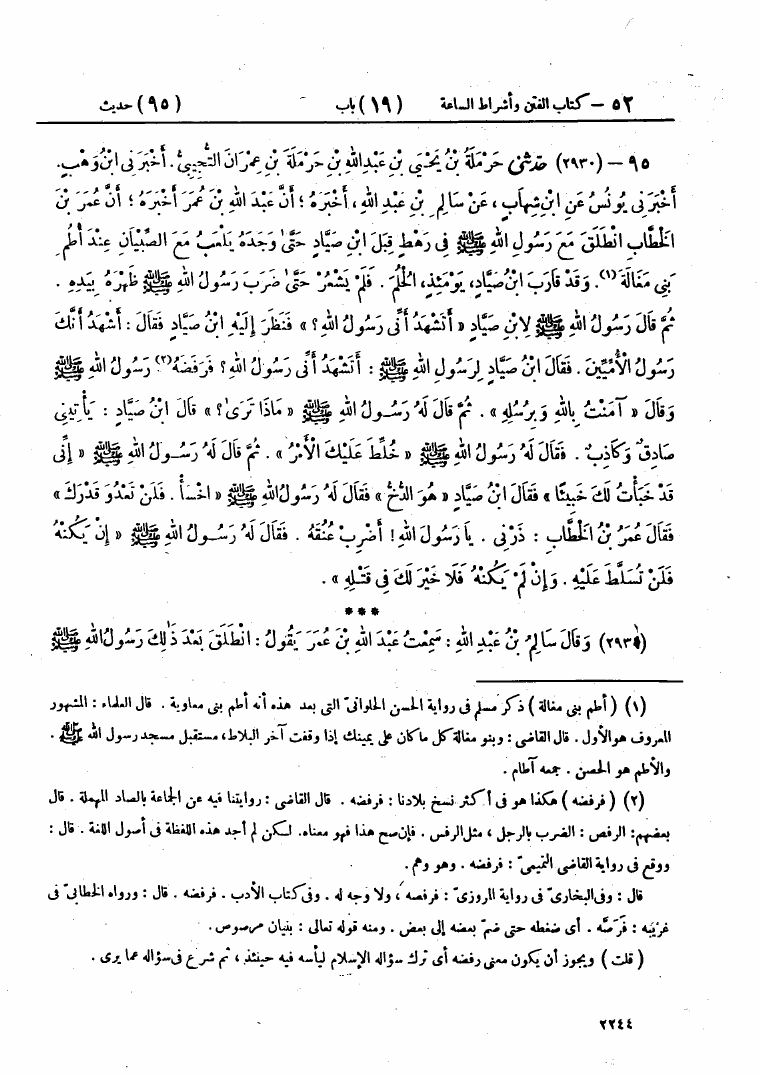 ٥٢ – كتاب الفتن وأشراط الساعة (١٩) باب (٩٥) حديث
٩٥ – (٢٩٣٠) حَدَّثَنِي حَرْمَلَةُ بْنُ يَحْيَىٰ بْنِ عَبْدِ اللهِ بْنِ حَرْمَلَةَ بْنِ عِمْرَانَ التُّجِيبِيُّ. أَخْبَرَنِي ابْنُ وَهْبٍ.
أَخْبَرَنِي يُونُسُ عَنِ ابْنِ شِهَابٍ، عَنْ سَالِمِ بْنِ عَبْدِ اللهِ، أَخْبَرَهُ؛ أَنَّ عَبْدَ اللهِ بْنَ عُمَرَ أَخْبَرَهُ؛ أَنَّ عُمَرَ بْنَ
الْخَطَّابِ انْطَلَقَ مَعَ رَسُولِ اللهِ ﷺ فِي رَهْطٍ قِبَلَ ابْنِ صَيَّادٍ حَتَّىٰ وَجَدَهُ يَلْعَبُ مَعَ الصِّبْيَانِ عِنْدَ أُطُمِ
بَنِي مَغَالَةَ (١). وَقَدْ قَارَبَ ابْنُ صَيَّادٍ، يَوْمَئِذٍ، الْحُلُمَ. فَلَمْ يَشْعُرْ حَتَّىٰ ضَرَبَ رَسُولُ اللهِ ﷺ ظَهْرَهُ بِيَدِهِ.
ثُمَّ قَالَ رَسُولُ اللهِ ﷺ لِابْنِ صَيَّادٍ «أَتَشْهَدُ أَنِّي رَسُولُ اللهِ؟» فَنَظَرَ إِلَيْهِ ابْنُ صَيَّادٍ فَقَالَ: أَشْهَدُ أَنَّكَ
رَسُولُ الْأُمِّيِّينَ. فَقَالَ ابْنُ صَيَّادٍ لِرَسُولِ اللهِ ﷺ: أَتَشْهَدُ أَنِّي رَسُولُ اللهِ؟ فَرَفَضَهُ (٢) رَسُولُ اللهِ ﷺ
وَقَالَ «آمَنْتُ بِاللهِ وَبِرُسُلِهِ». ثُمَّ قَالَ لَهُ رَسُولُ اللهِ ﷺ «مَاذَا تَرَىٰ؟» قَالَ ابْنُ صَيَّادٍ: يَأْتِينِي
صَادِقٌ وَكَاذِبٌ. فَقَالَ لَهُ رَسُولُ اللهِ ﷺ «خُلِّطَ عَلَيْكَ الْأَمْرُ». ثُمَّ قَالَ لَهُ رَسُولُ اللهِ ﷺ «إِنِّي
قَدْ خَبَأْتُ لَكَ خَبِيئًا» فَقَالَ ابْنُ صَيَّادٍ «هُوَ الدُّخُّ» فَقَالَ لَهُ رَسُولُ اللهِ ﷺ «اخْسَأْ. فَلَنْ تَعْدُوَ قَدْرَكَ»
فَقَالَ عُمَرُ بْنُ الْخَطَّابِ: ذَرْنِي. يَا رَسُولَ اللهِ! أَضْرِبْ عُنُقَهُ. فَقَالَ لَهُ رَسُولُ اللهِ ﷺ «إِنْ يَكُنْهُ
فَلَنْ تُسَلَّطَ عَلَيْهِ. وَإِنْ لَمْ يَكُنْهُ فَلَا خَيْرَ لَكَ فِي قَتْلِهِ».
***
(٢٩٣١) وَقَالَ سَالِمُ بْنُ عَبْدِ اللهِ: سَمِعْتُ عَبْدَ اللهِ بْنَ عُمَرَ يَقُولُ: انْطَلَقَ بَعْدَ ذَٰلِكَ رَسُولُ اللهِ ﷺ
(١) (أطم بنى مغالة) ذكر مسلم فى رواية الحسن الحلوانىّ التى بعد هذه أنه أطم بنى معاوية. قال العلماء: المشهور
المعروف هو الأول. قال القاضى: وبنو مغالة كل ما كان على يمينك إذا وقفت آخر البلاط، مستقبل مسجد رسول الله ﷺ.
والأطم هو الحصن. جمعه آطام.
(٢) (فرفضه) هكذا هو فى أكثر نسخ بلادنا: فرفضه. قال القاضى: روايتنا فيه عن الجماعة بالصاد المهملة. قال
بعضهم: الرفص: الضرب بالرجل، مثل الرفس. فإن صح هذا فهو معناه. لكن لم أجد هذه اللفظة فى أصول اللغة. قال:
ووقع فى رواية القاضى التميمىّ: فرفضه. وهو وهم.
قال: وفى البخارىّ فى رواية المروزىّ: فرقصه، ولا وجه له. وفى كتاب الأدب. فرفضه. قال: ورواه الخطابىّ فى
غريبه: فَرَصَّه. أى ضغطه حتى ضمّ بعضه إلى بعض. ومنه قوله تعالى: بنيان مرصوص.
(قلت) ويجوز أن يكون معنى رفضه أى ترك سؤاله الإسلام ليأسه فيه حينئذ، ثم شرع فى سؤاله عما يرى.
٢٢٤٤